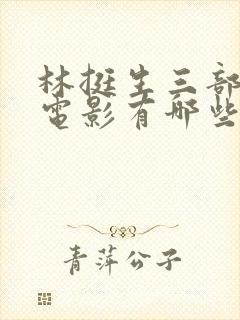 林挺生三部
電影有哪些
青萍公子